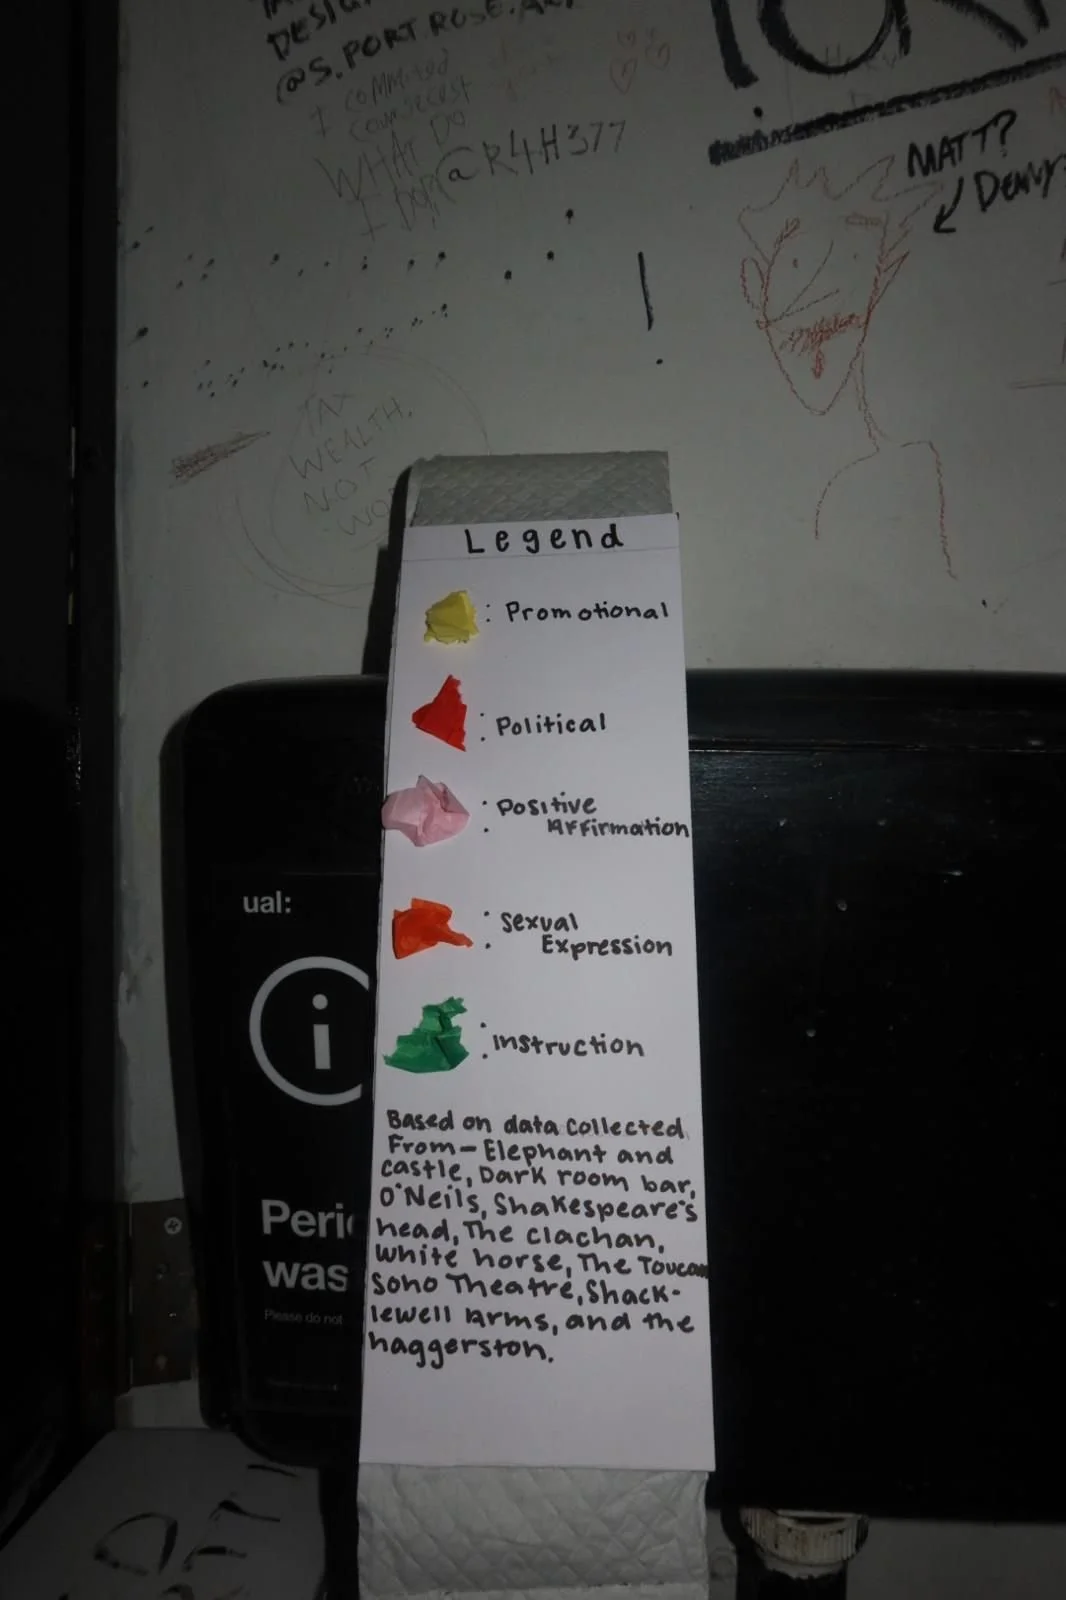 DESIG
@S.PORTROSE.ART
I COMMITED
WHAT DO
I DO?
@R4H377
MATT?
Denny
TAX
WEALTH,
NOT
WO
Legend
: Promotional
: Political
: Positive
Affirmation
: Sexual
Expression
: Instruction
Based on data collected
From - Elephant and
castle, Dark room bar,
O'Neils, Shakespeare's
head, The clachan,
White horse, The Toucan
Soho Theatre, Shack-
lewell Arms, and the
haggerston.
ual:
i
Peri
was
Please do not